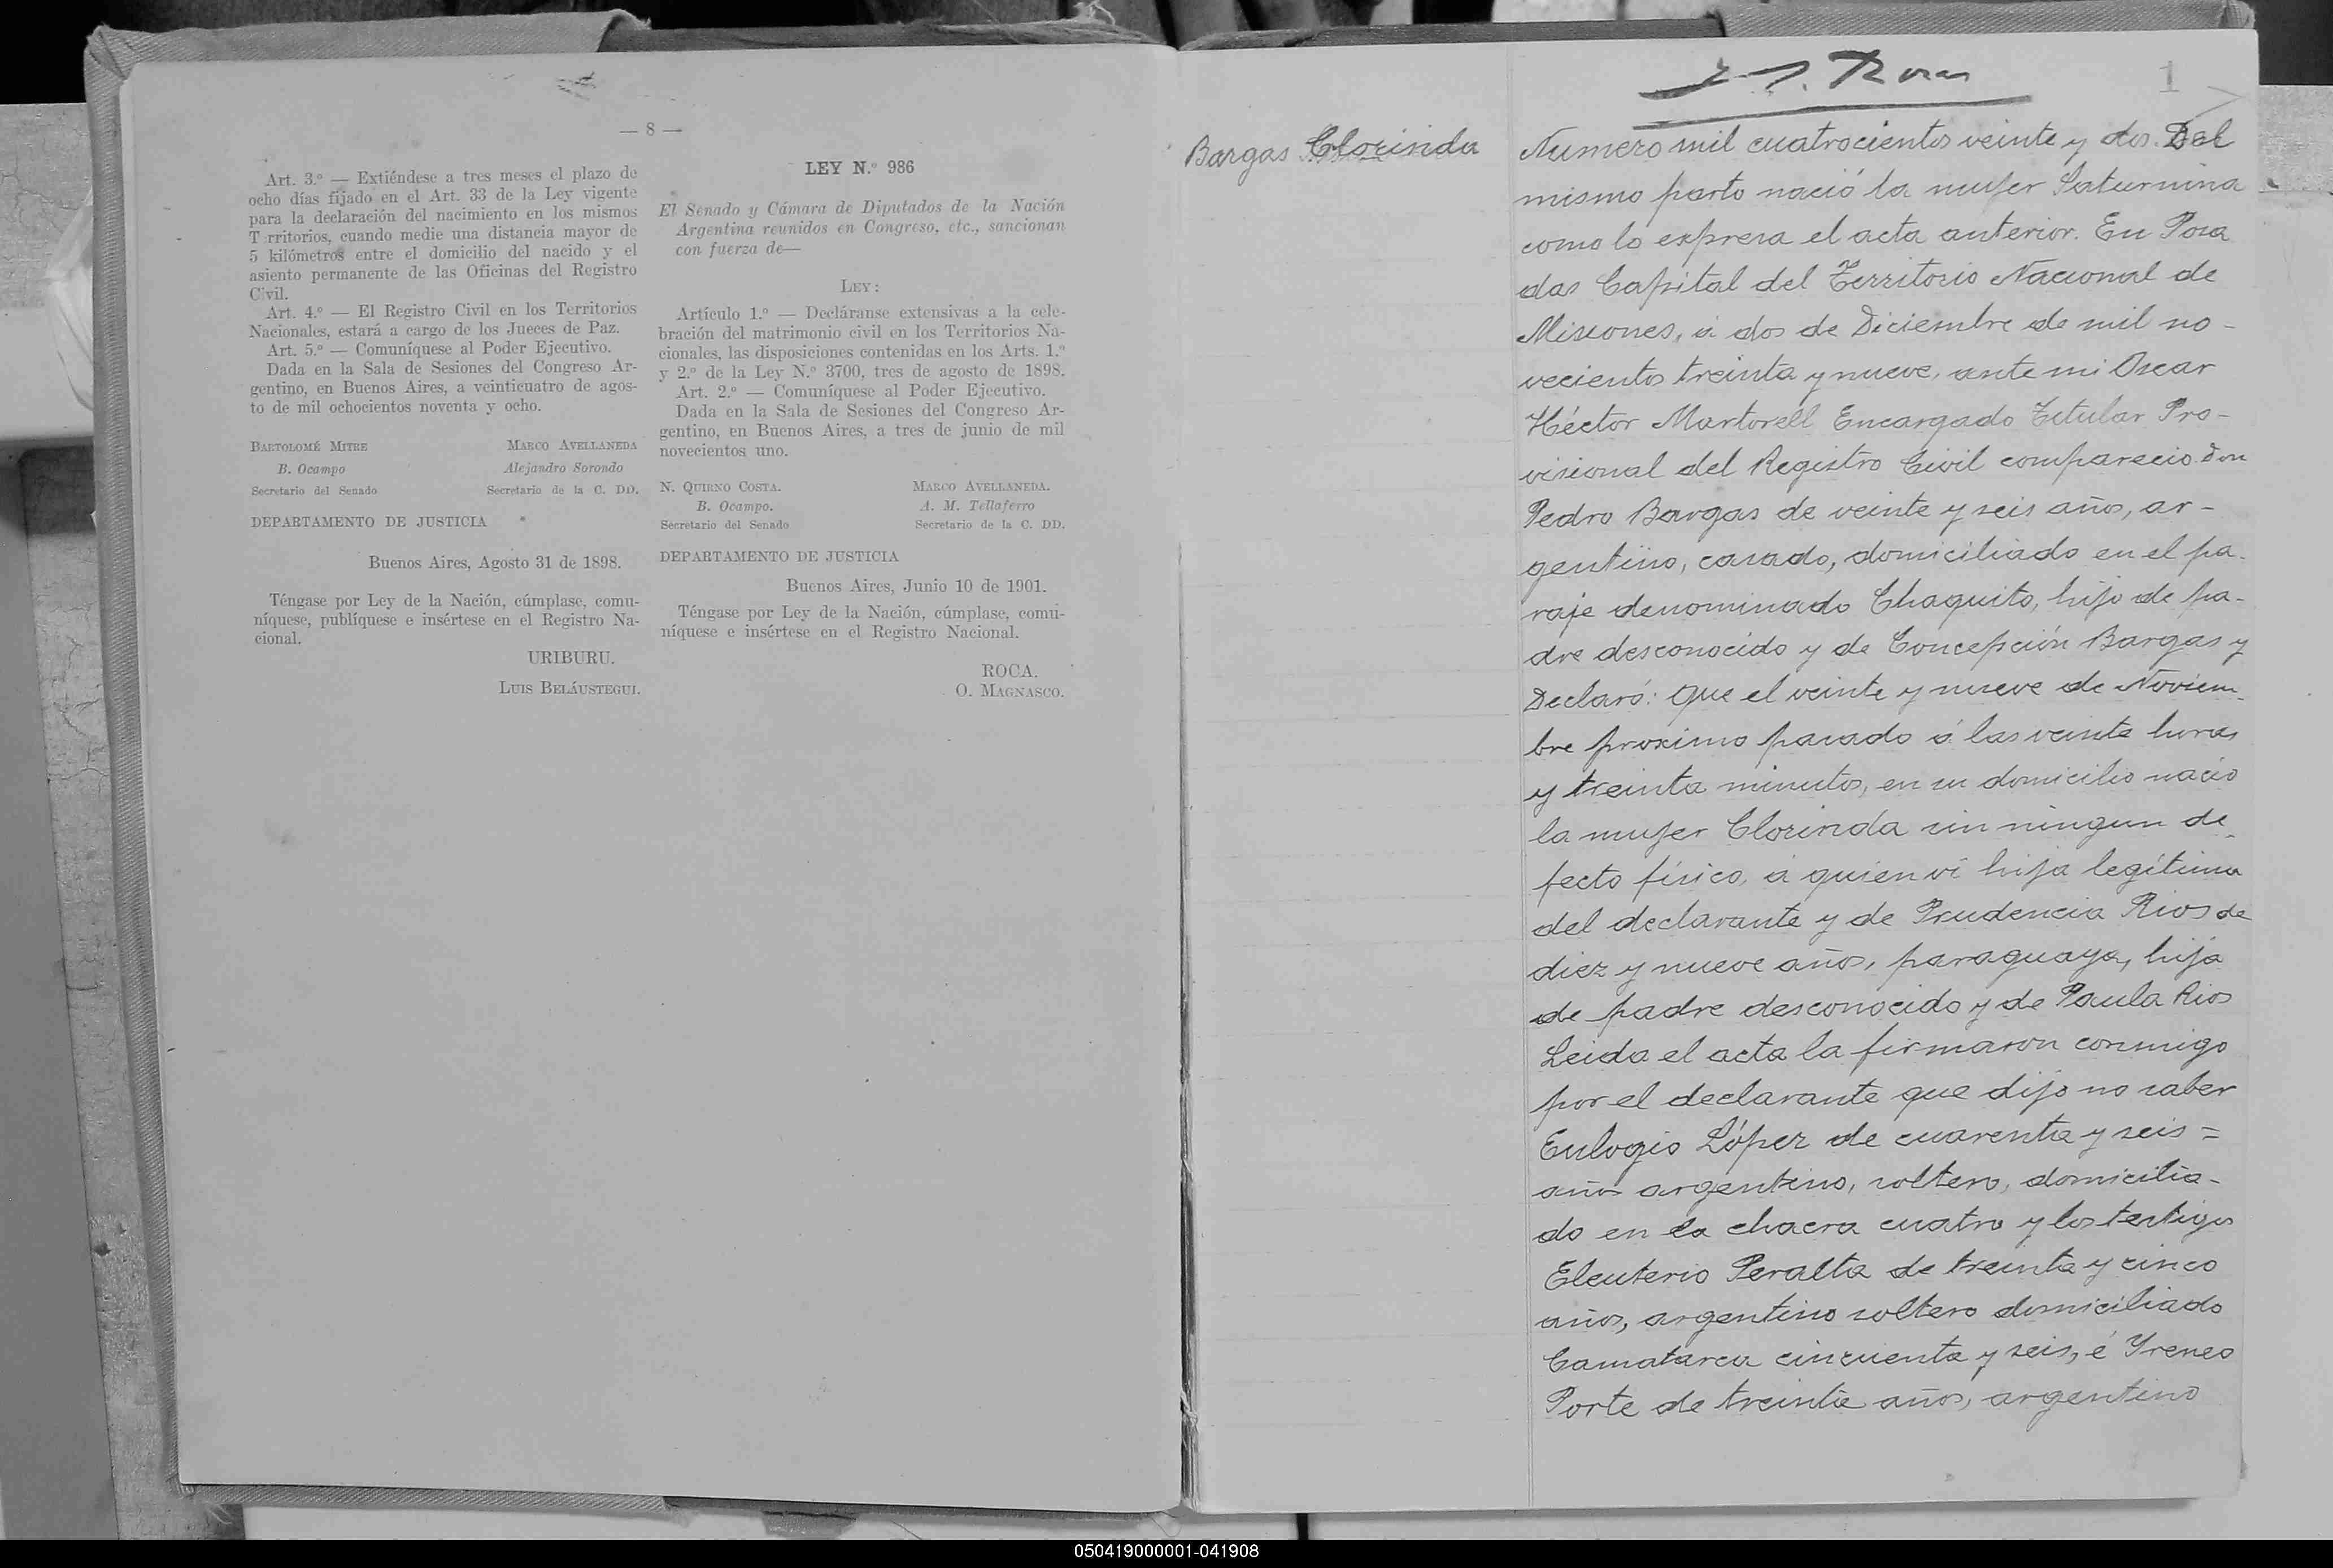 — 8 —
Art. 3.º — Extiéndese a tres meses el plazo de
ocho días fijado en el Art. 33 de la Ley vigente
para la declaración del nacimiento en los mismos
T rritorios, cuando medie una distancia mayor de
5 kilómetros entre el domicilio del nacido y el
asiento permanente de las Oficinas del Registro
Civil.
Art. 4.º — El Registro Civil en los Territorios
Nacionales, estará a cargo de los Jueces de Paz.
Art. 5.º — Comuníquese al Poder Ejecutivo.
Dada en la Sala de Sesiones del Congreso Ar-
gentino, en Buenos Aires, a veinticuatro de agos-
to de mil ochocientos noventa y ocho.
BARTOLOMÉ MITRE MARCO AVELLANEDA
B. Ocampo Alejandro Sorondo
Secretario del Senado Secretario de la C. DD.
DEPARTAMENTO DE JUSTICIA
Buenos Aires, Agosto 31 de 1898.
Téngase por Ley de la Nación, cúmplase, comu-
níquese, publíquese e insértese en el Registro Na-
cional.
URIBURU.
LUIS BELÁUSTEGUI.
LEY N.º 986
El Senado y Cámara de Diputados de la Nación
Argentina reunidos en Congreso, etc., sancionan
con fuerza de—
LEY:
Artículo 1.º — Decláranse extensivas a la cele-
bración del matrimonio civil en los Territorios Na-
cionales, las disposiciones contenidas en los Arts. 1.º
y 2.º de la Ley N.º 3700, tres de agosto de 1898.
Art. 2.º — Comuníquese al Poder Ejecutivo.
Dada en la Sala de Sesiones del Congreso Ar-
gentino, en Buenos Aires, a tres de junio de mil
novecientos uno.
N. QUIRNO COSTA. MARCO AVELLANEDA.
B. Ocampo. A. M. Tellaferro
Secretario del Senado Secretario de la C. DD.
DEPARTAMENTO DE JUSTICIA
Buenos Aires, Junio 10 de 1901.
Téngase por Ley de la Nación, cúmplase, comu-
níquese e insértese en el Registro Nacional.
ROCA.
O. MAGNASCO.
1
Bargas Clorinda
Numero mil cuatrocientos veinte y dos. Del
mismo parto nació la mujer Saturnina
como lo expresa el acta anterior. En Posa
das Capital del Territorio Nacional de
Misiones, á dos de Diciembre de mil no-
vecientos treinta y nueve, ante mi Oscar
Héctor Martorell Encargado Titular Pro-
visional del Registro Civil comparecio Don
Pedro Bargas de veinte y seis años, ar-
gentino, casado, domiciliado en el pa-
raje denominado Chaquito, hijo de pa-
dre desconocido y de Concepción Bargas y
Declaró: Que el veinte y nueve de Noviem-
bre proximo pasado á las veinte horas
y treinta minutos, en su domicilio nacio
la mujer Clorinda sin ningun de-
fecto físico, á quien ví hija legítima
del declarante y de Prudencia Rios de
diez y nueve años, paraguaya, hija
de padre desconocido y de Paula Rios
Leida el acta la firmaron conmigo
por el declarante que dijo no saber
Eulogio López de cuarenta y seis =
años argentino, soltero, domicilia-
do en la chacra cuatro y los testigos
Eleuterio Peralta de treinta y cinco
años, argentino soltero domiciliado
Camatarca cincuenta y seis, é Yreneo
Porte de treinta años, argentino
050419000001-041908